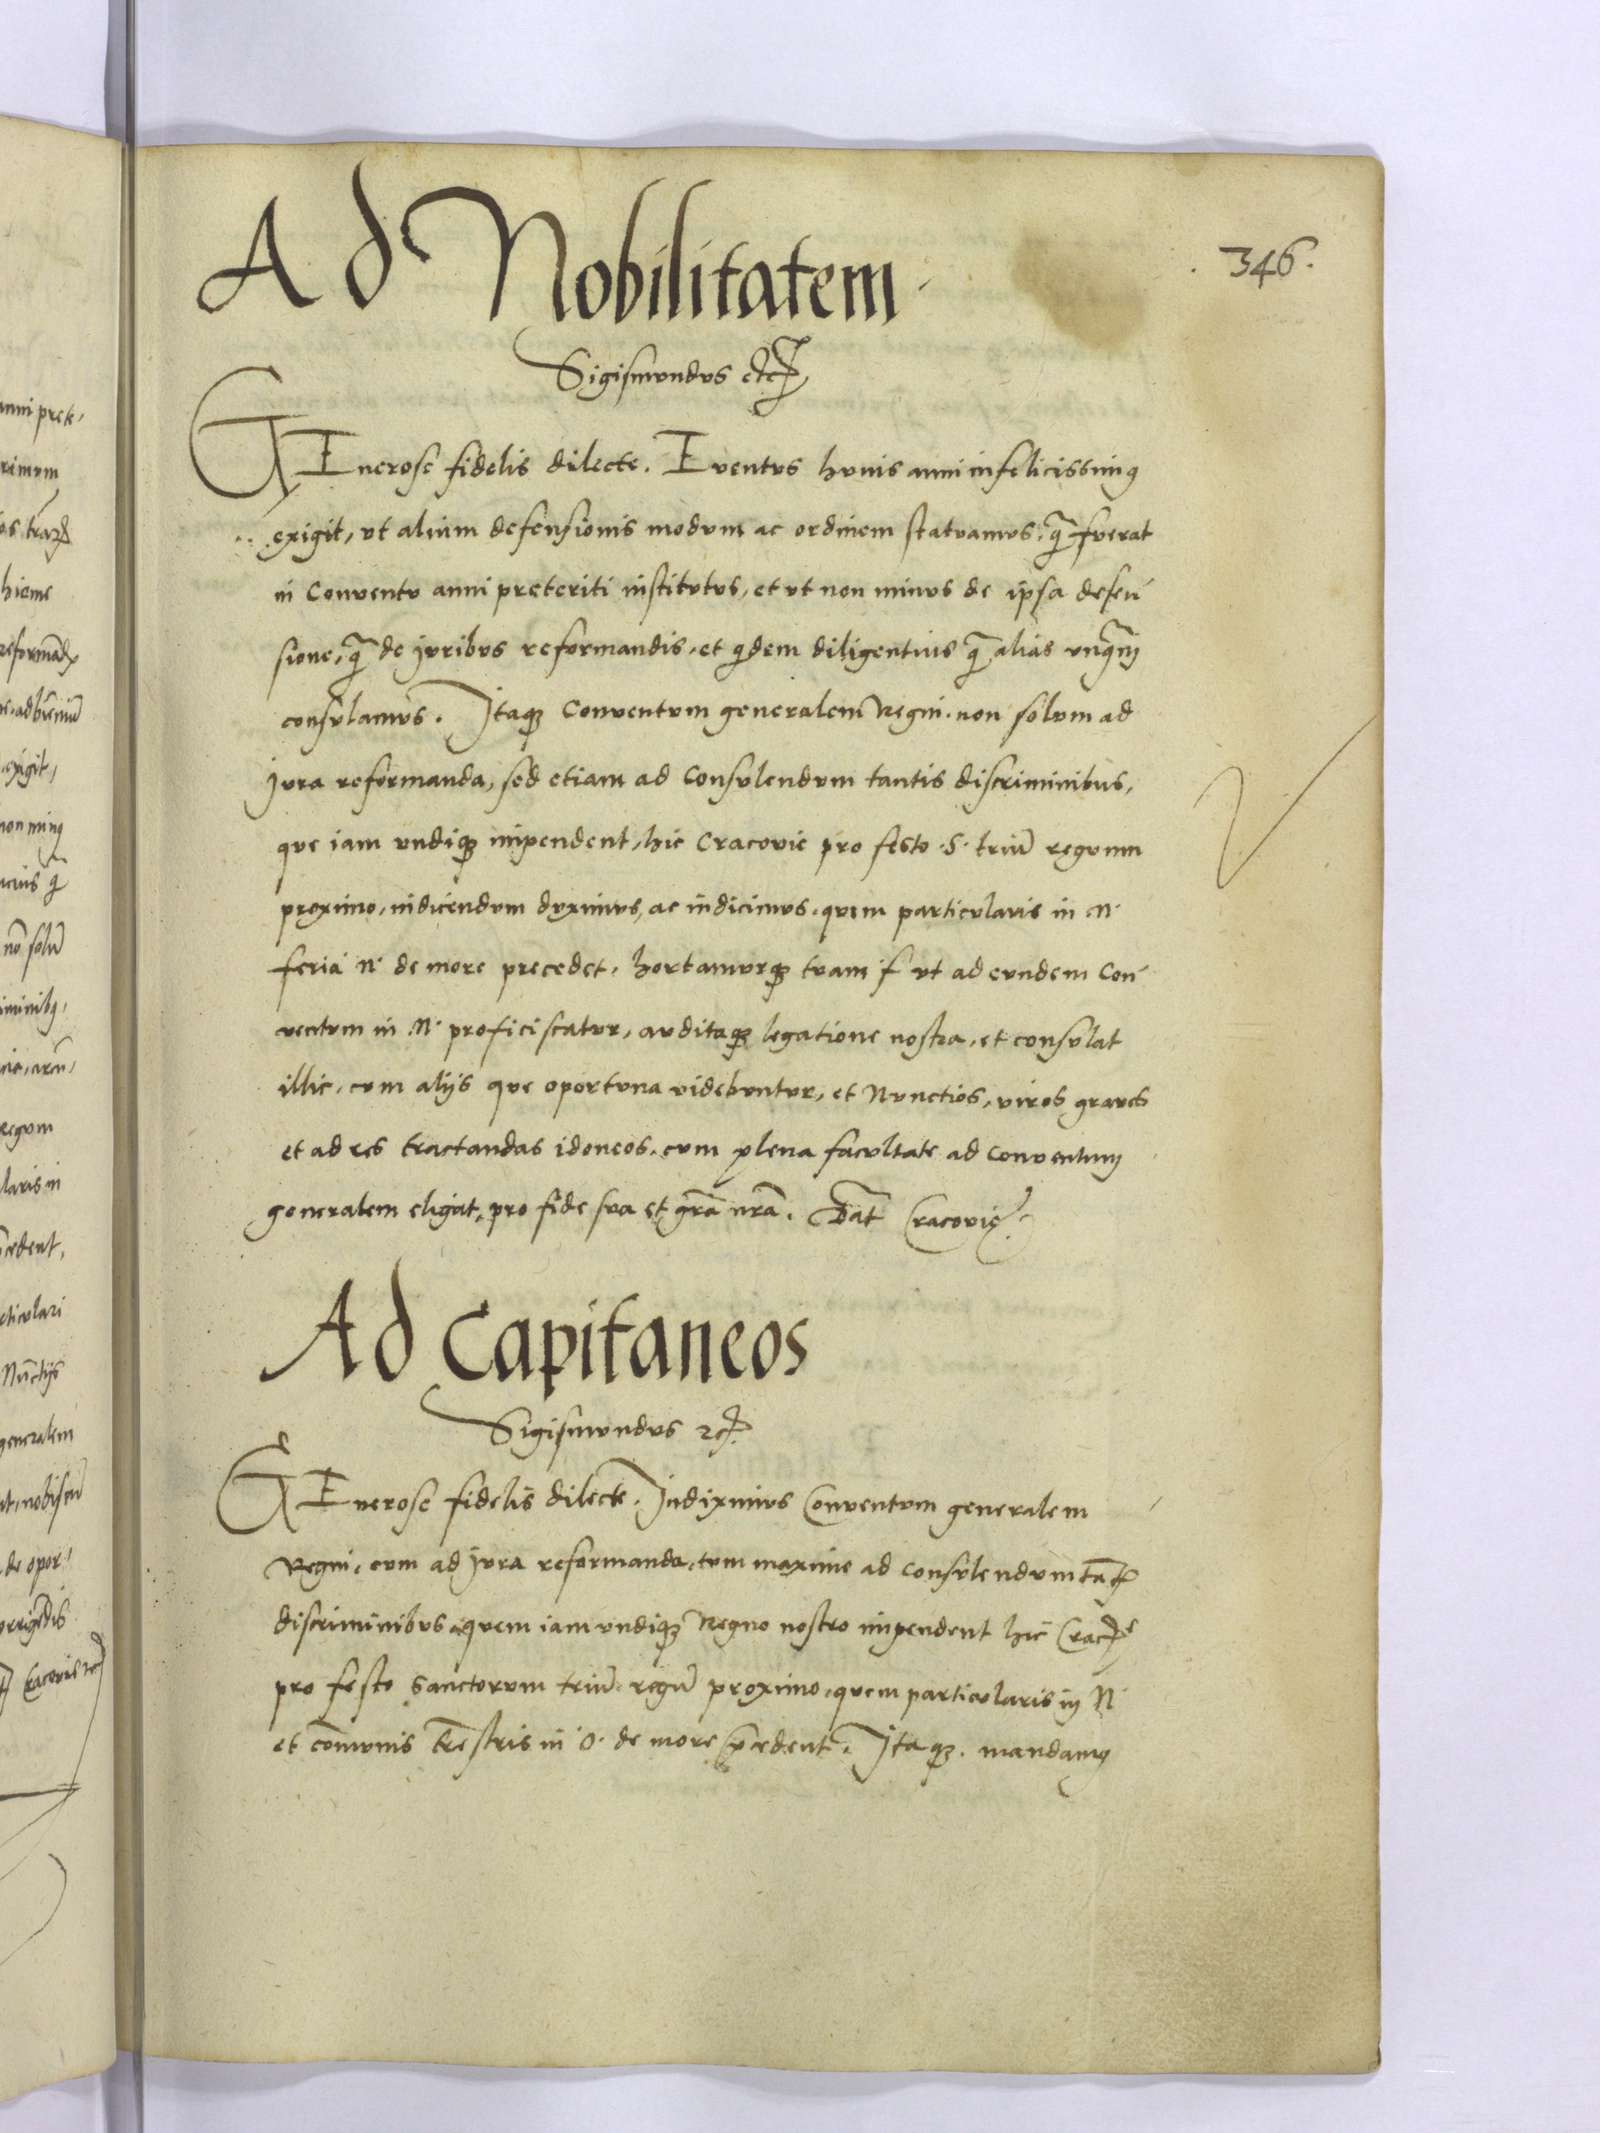 346.
Ad Nobilitatem
Sigismundus etc
GEnerose fidelis dilecte. Euentus huuis anni infelicissimꝯ
exigit, vt alium defensionis modum ac ordinem statuamus, q̃ fuerat
in Conuentu anni preteriti institutus, et vt non minus de ipsa defen
sione, q̃ de iuribus reformandis, et qdem diligentius q̃ alias vnq̃m
consulamus. Itaqꝫ Conuentum generalem Regni, non solum ad
Jura reformanda, sed etiam ad Consulendum tantis discriminibus,
que iam vndiqꝫ impendent, hic Cracouie pro festo .S. triũ regum
proximo, indicendum duximus, ac indicimus, quem particularis in N.
feria N. de more precedet. hortamurqꝫ tuam f vt ad eundem Con
uentum in N. proficiscatur, auditaqꝫ legatione nostra, et consulat
illic, cum alijs que oportuna videbuntur, et Nunctios, viros graues
et ad res tractandas idoneos, cum plena facultate ad Conuentum
generalem eligat, pro fide sua et grã nrã. Dat̃ Cracouię.
Ad Capitaneos
Sigismundus etc
GEnerose fidelis dilecte. Indiximus Conuentum generalem
Regni, cum ad Jura reformanda, tum maxime ad consulendum tãt
discriminibus, quem iam vndiqꝫ Regno nostro impendent hic Crac
pro festo Sanctorum triũ regũ proximo, quem particularis in N.
et cõmunis trẽstris in O. de more p̃cedent. Itaqꝫ. mandamꝯ
anni prete,
hieme
exigit,
non minꝯ
nõ solũ
regum
laris in
cedent,
ticulari
Nũctijs
generalem
de opor
Cracouie